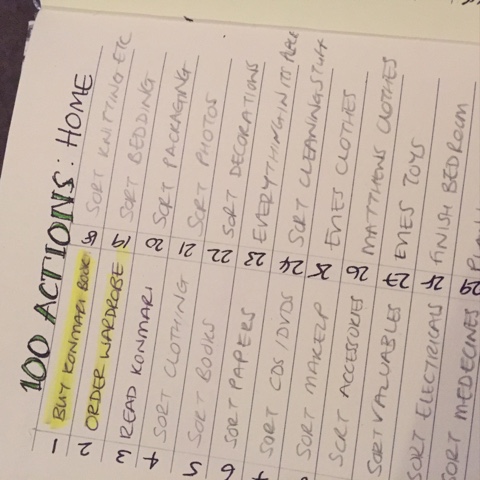 100 ACTIONS: HOME
1 BUY KONMARI BOOK
2 ORDER WARDROBE
3 READ KONMARI
4 SORT CLOTHING
5 SORT BOOKS
6 SORT PAPERS
SORT CDS/DVDS
SORT MAKEUP
SORT ACCESSORIES
SORT VALUABLES
SORT ELECTRICALS
SORT MEDECINES
18 SORT KNITTING ETC
19 SORT BEDDING
20 SORT PACKAGING
21 SORT PHOTOS
22 SORT DECORATIONS
23 EVERYTHING IN IT PLACE
24 SORT CLEANING STUFF
25 EVIES CLOTHES
26 MATTHEWS CLOTHES
27 EVIES TOYS
28 FINISH BEDROOM
29